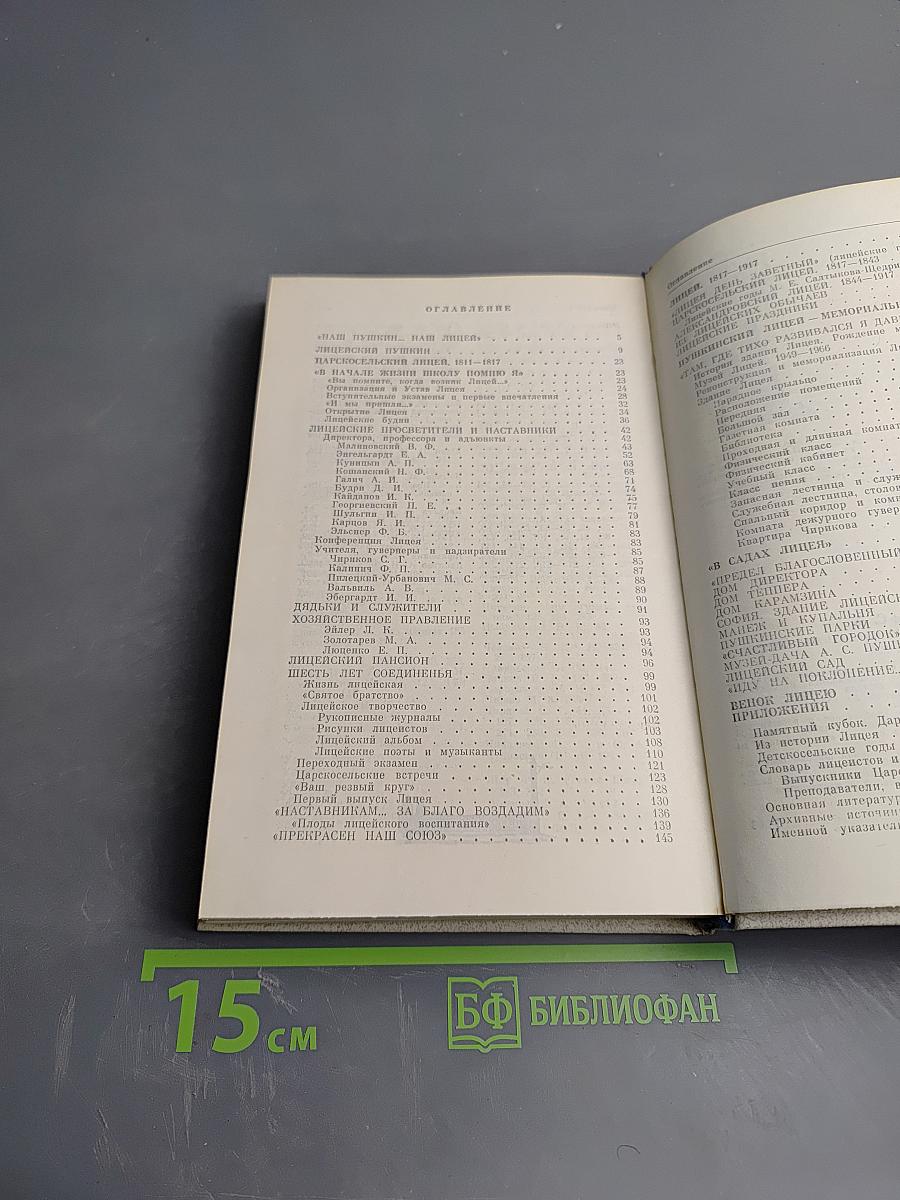 ОГЛАВЛЕНИЕ
«НАШ ПУШКИН... НАШ ЛИЦЕЙ» 5
ЛИЦЕЙСКИЙ ПУШКИН 9
ЦАРСКОСЕЛЬСКИЙ ЛИЦЕЙ, 1811—1817 23
«В НАЧАЛЕ ЖИЗНИ ШКОЛУ ПОМНЮ Я» 23
«Вы помните, когда возник Лицей...» 23
Организация и Устав Лицея 24
Вступительные экзамены и первые впечатления 28
«И мы пришли...» 32
Открытие Лицея 34
Лицейские будни 36
ЛИЦЕЙСКИЕ ПРОСВЕТИТЕЛИ И НАСТАВНИКИ 42
Директора, профессора и адъюнкты 42
Малиновский В. Ф. 43
Энгельгардт Е. А. 52
Куницын А. П. 63
Кошанский Н. Ф. 68
Галич А. И. 71
Будри Д. И. 74
Кайданов И. К. 75
Георгиевский П. Е. 77
Шульгин И. П. 79
Карцов Я. И. 81
Эльснер Ф. Б. 83
Конференция Лицея 83
Учителя, гувернеры и надзиратели 85
Чириков С. Г. 85
Калинич Ф. П. 87
Пилецкий-Урбанович М. С. 88
Вальвиль А. В. 89
Эбергардт И. И. 90
ДЯДЬКИ И СЛУЖИТЕЛИ 91
ХОЗЯЙСТВЕННОЕ ПРАВЛЕНИЕ 93
Эйлер Л. К. 93
Золотарев М. А. 94
Люценко Е. П. 94
ЛИЦЕЙСКИЙ ПАНСИОН 96
ШЕСТЬ ЛЕТ СОЕДИНЕНЬЯ 99
Жизнь лицейская 99
«Святое братство» 101
Лицейское творчество 102
Рукописные журналы 102
Рисунки лицеистов 103
Лицейский альбом 108
Лицейские поэты и музыканты 110
Переходный экзамен 121
Царскосельские встречи 123
«Ваш резвый круг» 128
Первый выпуск Лицея 130
«НАСТАВНИКАМ... ЗА БЛАГО ВОЗДАДИМ» 136
«Плоды лицейского воспитания» 139
«ПРЕКРАСЕН НАШ СОЮЗ» 145
Оглавление
ЛИЦЕЙ. 1817—1917
«ЛИЦЕЯ ДЕНЬ ЗАВЕТНЫЙ» (лицейские г
ЦАРСКОСЕЛЬСКИЙ ЛИЦЕЙ. 1817—1843
Лицейские годы М. Е. Салтыкова-Щедри
АЛЕКСАНДРОВСКИЙ ЛИЦЕЙ. 1844—1917
ИЗ ЛИЦЕЙСКИХ ОБЫЧАЕВ
ЛИЦЕЙСКИЕ ПРАЗДНИКИ
ПУШКИНСКИЙ ЛИЦЕЙ — МЕМОРИАЛЬН
«ТАМ, ГДЕ ТИХО РАЗВИВАЛСЯ Я ДАВ
История здания Лицея. Рождение м
Музей Лицея. 1949—1966
Реконструкция и мемориализация Ли
Здание Лицея
Парадное крыльцо
Расположение помещений
Передняя
Большой зал
Газетная комната
Библиотека
Проходная и длинная комнат
Физический класс
Физический кабинет
Учебный класс
Класс пения
Запасная лестница и служ
Служебная лестница, столов
Спальный коридор и комн
Комната дежурного гувер
Квартира Чирикова
«В САДАХ ЛИЦЕЯ»
«ПРЕДЕЛ БЛАГОСЛОВЕННЫЙ
ДОМ ДИРЕКТОРА
ДОМ ТЕППЕРА
ДОМ КАРАМЗИНА
СОФИЯ. ЗДАНИЕ ЛИЦЕЙСК
МАНЕЖ И КУПАЛЬНЯ
ПУШКИНСКИЕ ПАРКИ
«СЧАСТЛИВЫЙ ГОРОДОК»
МУЗЕЙ-ДАЧА А. С. ПУШК
ЛИЦЕЙСКИЙ САД
«ИДУ НА ПОКЛОНЕНИЕ...
ВЕНОК ЛИЦЕЮ
ПРИЛОЖЕНИЯ
Памятный кубок. Дар
Из истории Лицея
Детскосельские годы
Словарь лицеистов и
Выпускники Царс
Преподаватели, в
Основная литератур
Архивные источни
Именной указател
15 см
БФ БИБЛИОФАН